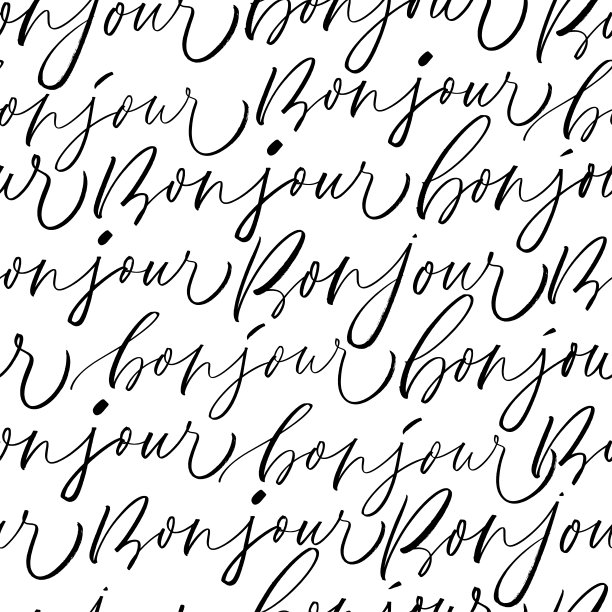 onjour bonjour Bo
onjour Bonjour bo
ur Bonjour bonjou
onjour Bonjour B
r bonjour bonjou
onjour bonjour Bo
ur Bonjour Bonjou
bonjour